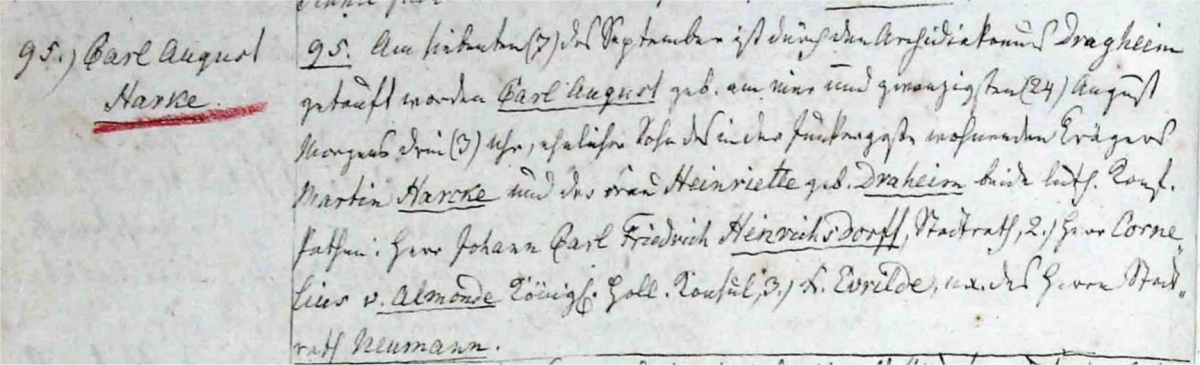 95.) Carl August
Harke.
95. Am siebenten (7) des September ist durch den Archidiakonus Dragheim
getauft worden Carl August geb. am vier und zwanzigsten (24) August
Morgens drei (3) Uhr, ehelicher Sohn des in der wohnenden Trägers
Martin Harcke und der Frau Heinriette geb. Draheim beide luth. Konf.
Pathen: Herr Johann Carl Friedrich Heinrichsdorff, Stadtrath, 2.) Herr Corne„
lius v. Almonde Königl. Holl. Konsul, 3.) Evrilde, ux. des Herrn Stadt„
rath Neumann.